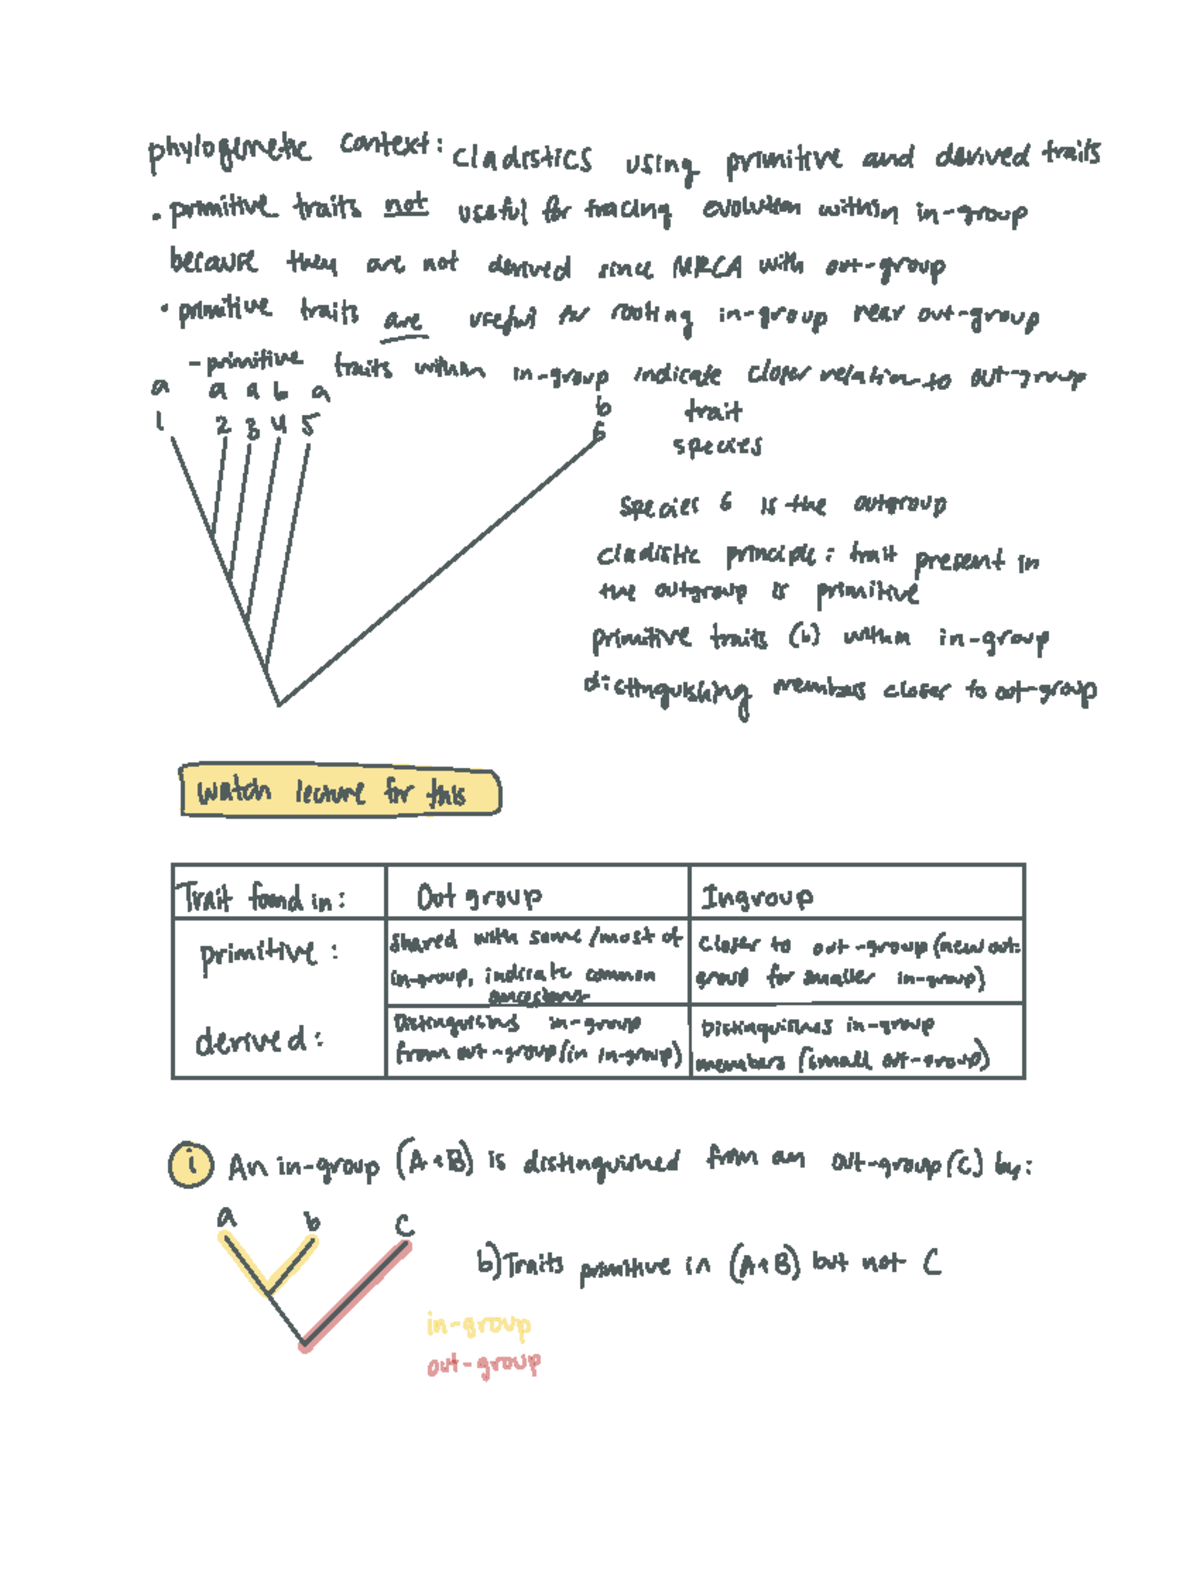 phylogenetic context: cladistics using primitive and derived traits
• primitive traits not useful for tracing evolution within in-group
because they are not derived since MRCA with out-group
• primitive traits are useful for rooting in-group near out-group
- primitive traits within in-group indicate closer relation to out-group
a a a b a b trait
1 2 3 4 5 6 species
Species 6 is the outgroup
cladistic principle: trait present in
the outgroup is primitive
primitive traits (b) within in-group
distinguishing members closer to out-group
Watch lecture for this
Trait found in: Out group Ingroup
primitive: shared with some/most of in-group, indicate common ancestors
closer to out-group (new out-group for smaller in-group)
derived: Distinguishes in-group from out-group (in in-group)
Distinguishes in-group members (small out-group)
i An in-group (A+B) is distinguished from an out-group (C) by:
a b c
b) Traits primitive in (A+B) but not C
in-group
out-group